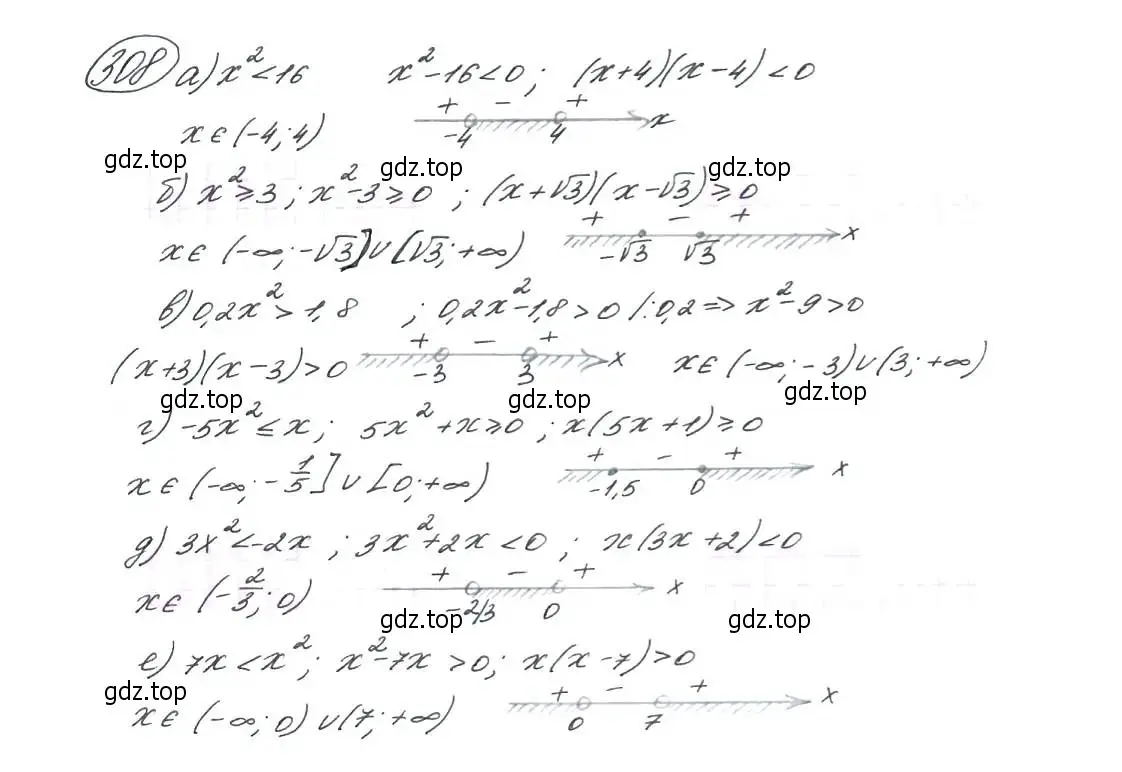 308 а) x² < 16   x² - 16 < 0 ; (x+4)(x-4) < 0
+ - +
x ∈ (-4; 4)   -4 4 x
gdz.top gdz.top gdz.top
б) x² ≥ 3 ; x² - 3 ≥ 0 ; (x+√3)(x-√3) ≥ 0
+ - +
x ∈ (-∞; -√3] ∪ [√3; +∞)   -√3 √3 x
в) 0,2x² > 1,8 ; 0,2x² - 1,8 > 0 /:0,2 => x² - 9 > 0
+ - +
(x+3)(x-3) > 0   -3 3 x   x ∈ (-∞; -3) ∪ (3; +∞)
gdz.top gdz.top gdz.top
г) -5x² ≤ x ; 5x² + x ≥ 0 ; x(5x+1) ≥ 0
+ - +
x ∈ (-∞; -1/5] ∪ [0; +∞)   -1,5 0 x
д) 3x² < -2x ; 3x² + 2x < 0 ; x(3x+2) < 0
+ - +
x ∈ (-2/3; 0)   -2/3 0 x
gdz.top gdz.top
е) 7x < x² ; x² - 7x > 0 ; x(x-7) > 0
gdz.top
+ - +
x ∈ (-∞; 0) ∪ (7; +∞)   0 7 x